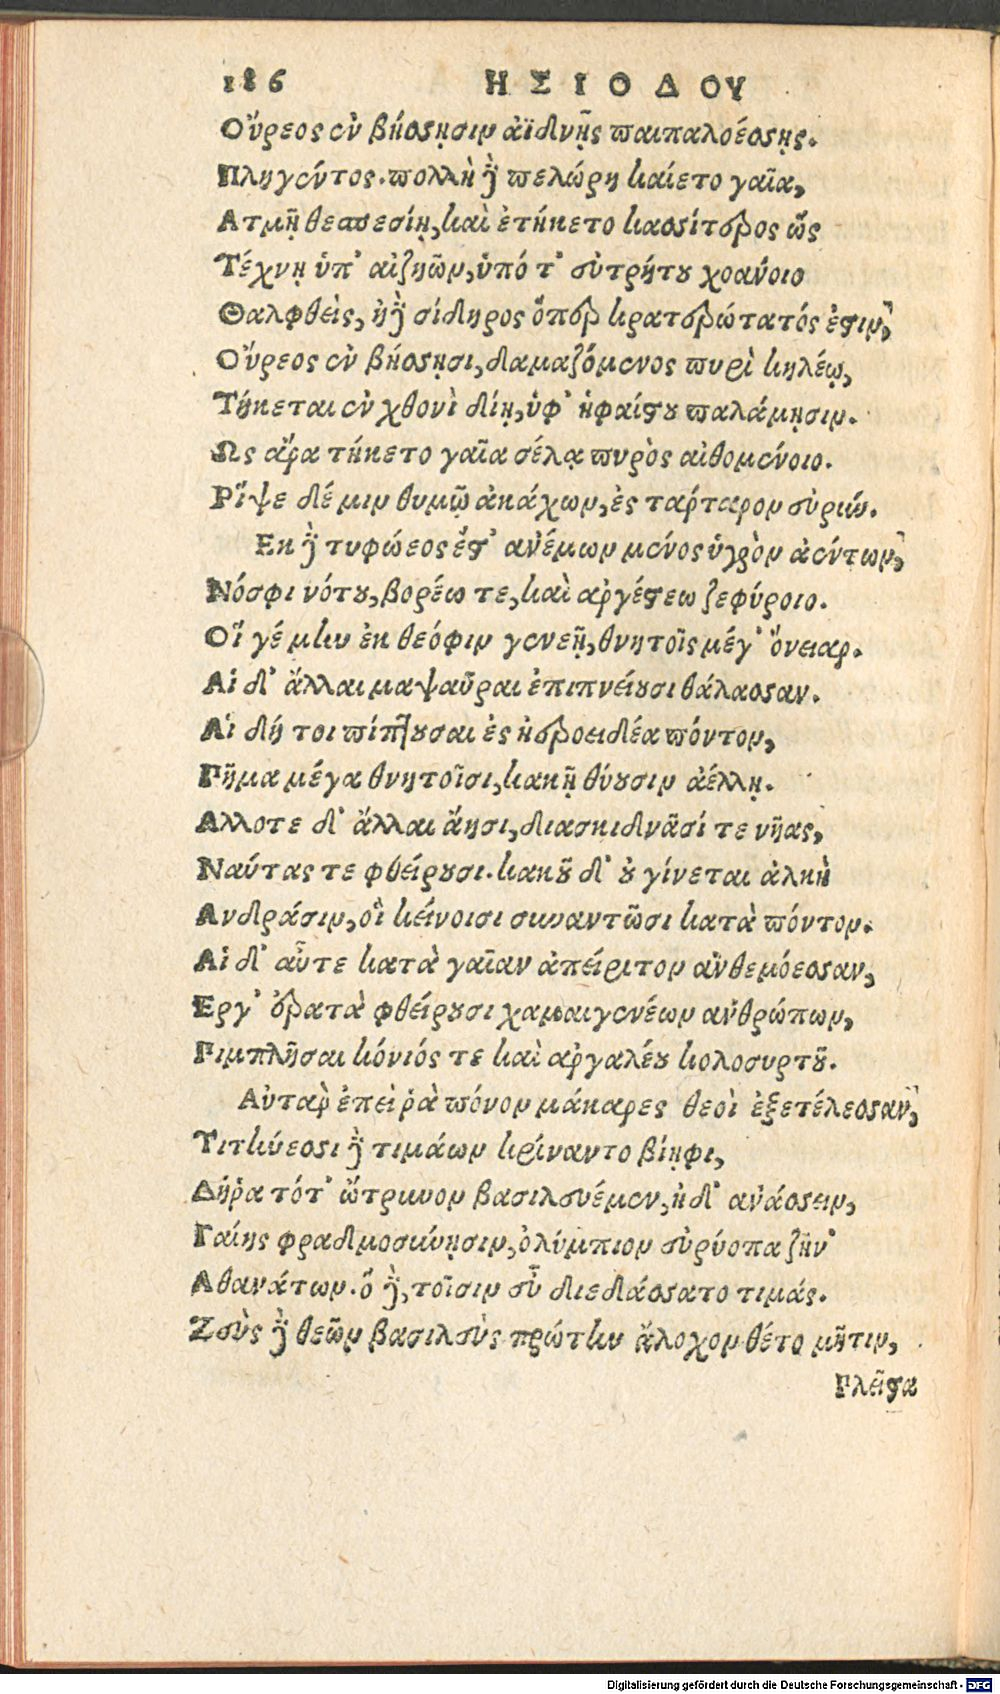 186 ΗΣΙΟΔΟΥ
Οὔρεος ἐν βήσσησιν ἀϊδνῇς παιπαλοέσσῃς.
Πληγέντος. πολλὴ δὲ πελώρη καίετο γαῖα,
Ατμῇ θεσπεσίῃ, καὶ ἐτήκετο κασσίτερος ὣς
Τέχνῃ ὑπ' αἰζηῶν, ὑπό τ' εὐτρήτου χοάνοιο
Θαλφθεὶς, ἠὲ σίδηρος ὅπερ κρατερώτατός ἐστιν,
Οὔρεος ἐν βήσσησι, δαμαζόμενος πυρὶ κηλέῳ,
Τήκεται ἐν χθονὶ δίῃ, ὑφ' ἡφαίστου παλάμησιν.
Ως ἄρα τήκετο γαῖα σέλᾳ πυρὸς αἰθομένοιο.
Ρῖψε δέ μιν θυμῷ ἀκάχων, ἐς τάρταρον εὐριώ.
Εκ δὲ τυφώεος ἔστ' ανέμων μένος ὑγρὸν ἀέντων,
Νόσφι νότου, βορέω τε, καὶ αργέστεω ζεφύροιο.
Οἵ γέ μὴν ἐκ θεόφιν γενεῇ, θνητοῖς μέγ' ὄνειαρ.
Αἱ δ' ἄλλαι μαψαῦραι ἐπιπνείουσι θάλασσαν.
Αἱ δή τοι πίπτουσαι ἐς ἠεροειδέα πόντον,
Πῆμα μέγα θνητοῖσι, κακῇ θύουσιν ἀέλλῃ.
Αλλοτε δ' ἄλλαι ἄησι, διασκιδνᾶσί τε νῆας,
Ναύτας τε φθείρουσι. κακοῦ δ' οὐ γίνεται ἀλκὴ
Ανδράσιν, οἳ κείνοισι συναντῶσι κατὰ πόντον.
Αἱ δ' αὖτε κατὰ γαῖαν ἀπείριτον ανθεμόεσσαν,
Εργ' ἐρατὰ φθείρουσι χαμαιγενέων ανθρώπων,
Πιμπλῆσαι κόνιός τε καὶ αργαλέου κολοσυρτοῦ.
Αὐταρ ἐπεί ῥὰ πόνον μάκαρες θεοὶ ἐξετέλεσσαν,
Τιτήνεσσι δὲ τιμάων κρίναντο βίηφι,
Δή ῥα τότ' ὤτρυνον βασιλευέμεν, ἠδ' ανάσσειν,
Γαίης φραδμοσύνησιν, ὀλύμπιον εὐρύοπα ζῆν'
Αθανάτων. ὃ δὲ, τοῖσιν εὖ διεδάσσατο τιμάς.
Ζεὺς δὲ θεῶν βασιλεὺς πρώτην ἄλοχον θέτο μῆτιν,
Πλεῖστα
Digitalisierung gefördert durch die Deutsche Forschungsgemeinschaft - DFG